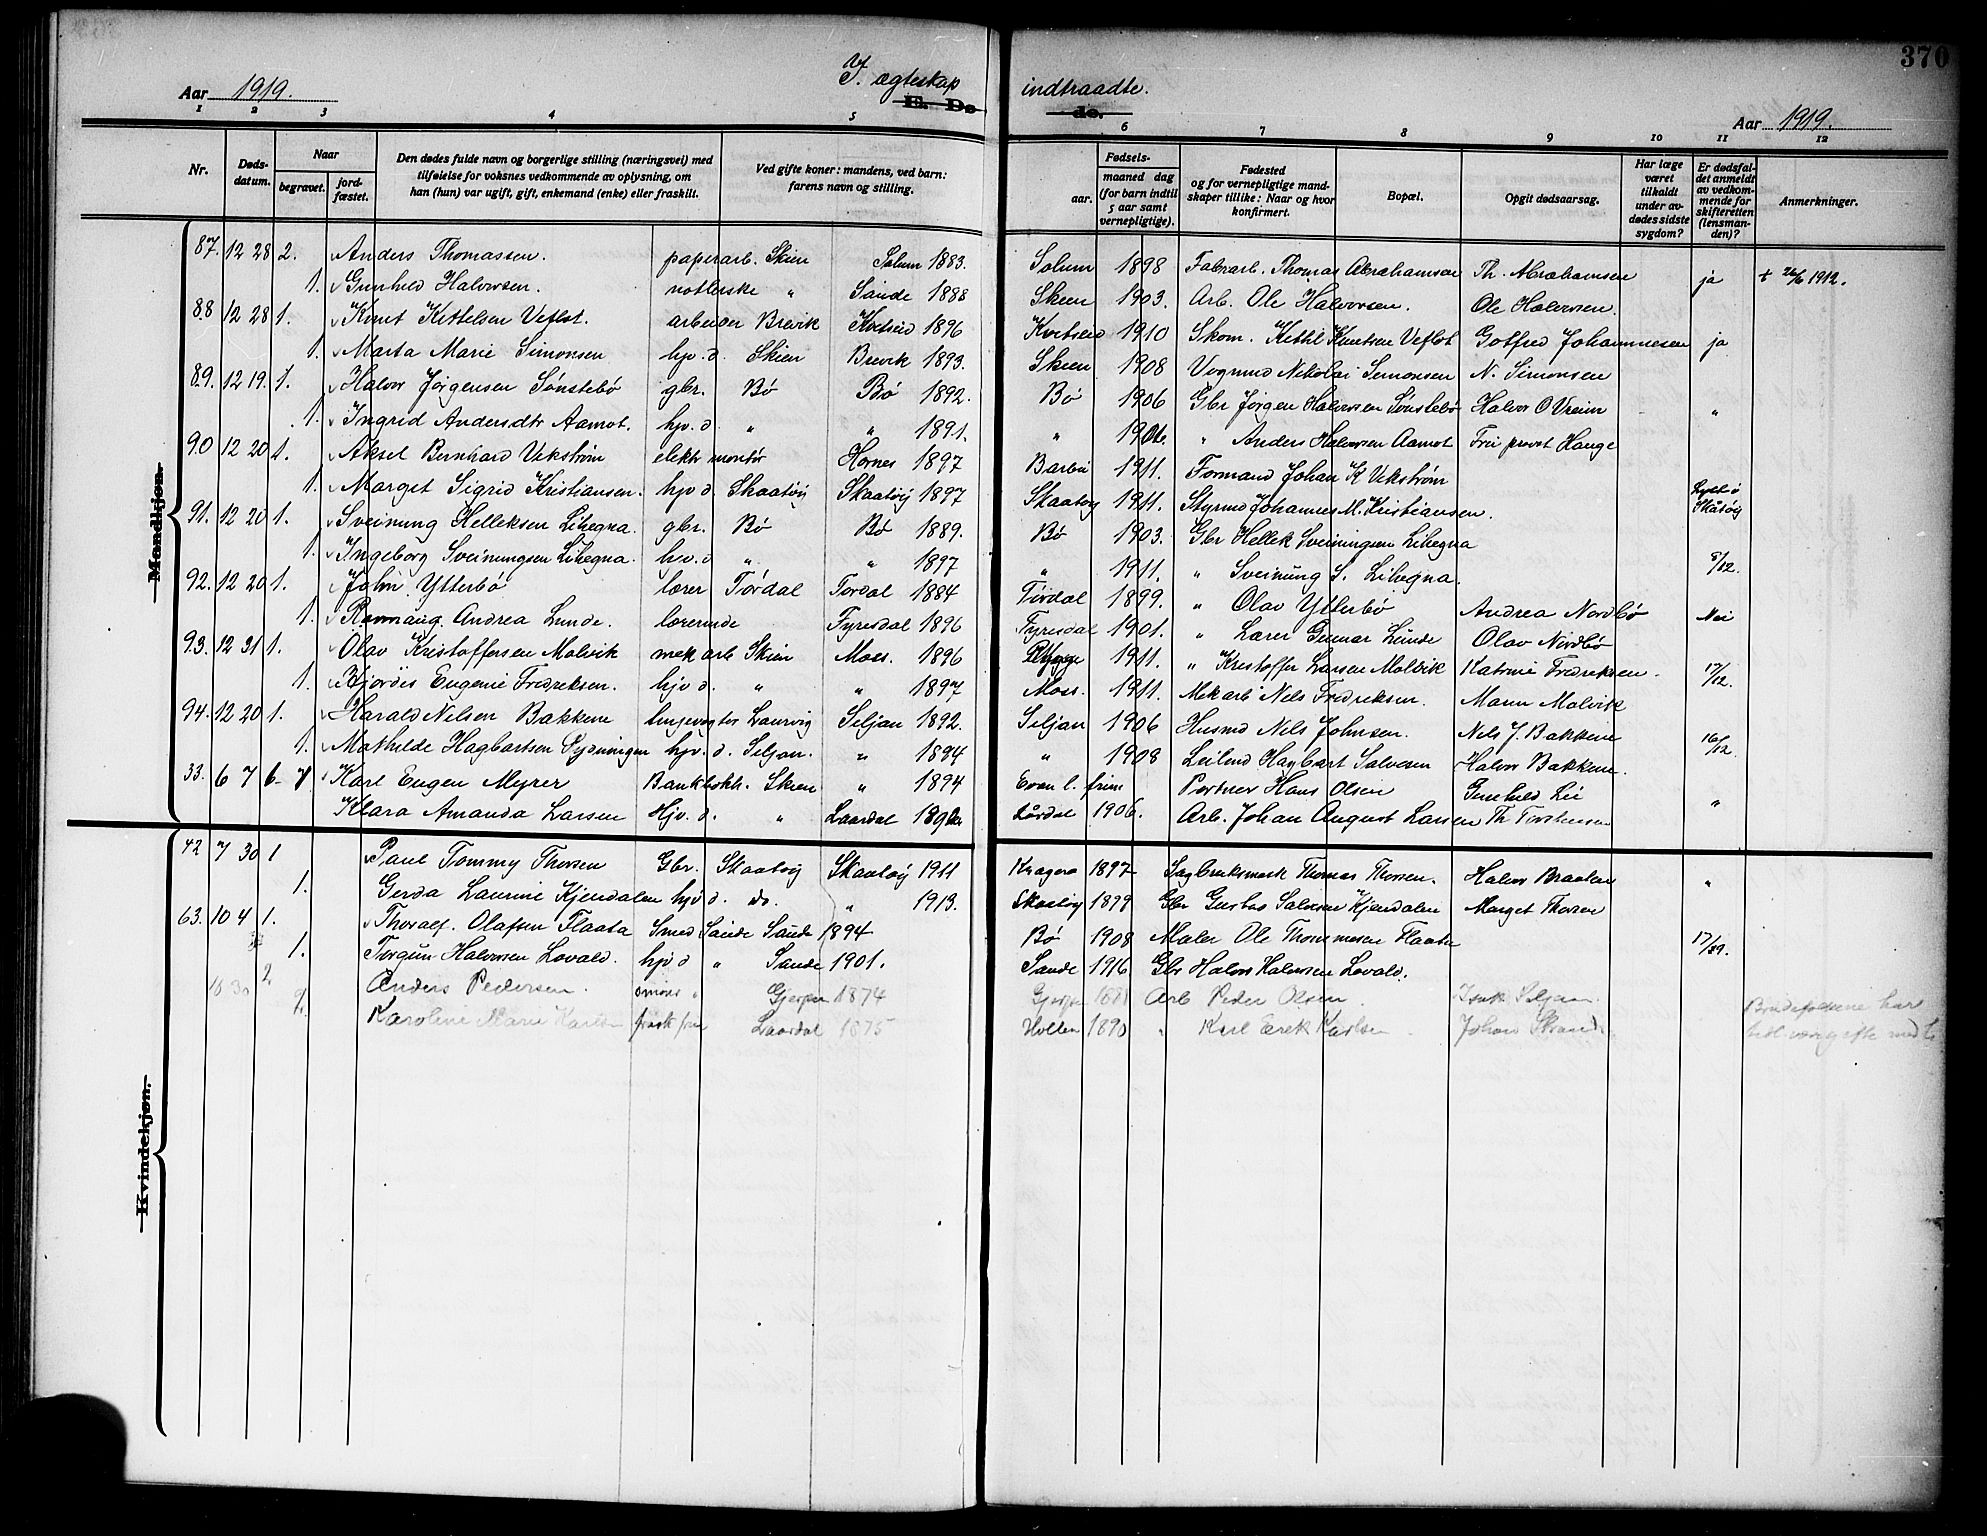 370
Aar 1919.
I. ægteskap
E. Dø
indtraadte.
de.
Aar 1919.
1 2 3 4 5 6 7 8 9 10 11 12
Nr.
Døds-
datum.
Naar
begravet.
jord-
fæstet.
Den dødes fulde navn og borgerlige stilling (næringsvei) med
tilføielse for voksnes vedkommende av oplysning, om
han (hun) var ugift, gift, enkemand (enke) eller fraskilt.
Ved gifte koner: mandens, ved barn:
farens navn og stilling.
Fødsels-
aar.
maaned dag
(for barn indtil
5 aar samt
vernepligtige).
Fødested
og for vernepligtige mand-
skaper tillike: Naar og hvor
konfirmert.
Bopæl.
Opgit dødsaarsag.
Har læge
været
tilkaldt
under av-
dødes sidste
sygdom?
Er dødsfal-
det anmeldt
av vedkom-
mende for
skifteretten
(lensman-
den)?
Anmerkninger.
Mandkjøn.
87. 12 28 2. Anders Thomassen. paperarb. Skien Solum 1883. Solum 1898 Fabrarb. Thomas Abrahamsen Th. Abrahamsen ja + 26/6 1912.
1. Gunhild Halvorsen. " Saude 1888 Skien 1903. Arb. Ole Halvorsen. Ole Halvorsen.
88 12 28 1. Knut Kittelsen Veflot. arbeider Brevik Kvitseid 1896 Kvitseid 1910 Skom. Kittil Knutsen Veflot Gotfred Johannesen ja
1. Marta Marie Simonsen hjv. d. Skien Brevik 1893. Skien 1908 Vognmd Nikolai Simonsen N. Simonsen
89. 12 19. 1. Halvor Jørgensen Sønstebø gbr. Bø Bø 1892. Bø 1906 Gbr Jørgen Halvorsen Sønstebø Halvor O Vreim "
1. Ingrid Andersdtr Aamot. hjv. d. " " 1891. " 1906. " Anders Halvorsen Aamot Frü provst Hauge
90 12 20 1. Aksel Bernhard Vekstrøm elektr montør Hornes 1897 Barbu 1911. Formand Johan K Vekstrøm
1. Marget Sigrid Kristiansen. hjv d. Skaatøy Skaatøy 1897 Skaatøy 1911. Styrmd Johannes M. Kristiansen. Skåtøy
91. 12 20 1. Sveinung Helleksen Lihegna. gbr. Bø Bø 1889. Bø 1903. Gbr Hellek Sveiningsen Lihegna
1. Ingeborg Sveinungsen Lihegna. hv. d " " 1897 " 1911. " Sveinung S. Lihegna. 5/12.
92. 12 20 1. John Ytterbø lærer Tørdal Tørdal 1884 Tørdal 1899. " Olav Ytterbø Andrea Nordbø Nei
1. Rannaug Andrea Lunde. lærerinde Fyresdal 1896 Fyresdal 1901. " Lærer Gunnar Lunde Olav Nordbø
93. 12 31 1. Olav Kristoffersen Malvik mek arb Skien Moss. 1896 Rygge 1911. " Kristoffer Larsen Malvik Katrine Fredriksen. 17/12.
1. Hjørdis Eugenie Fredriksen. hjv d. " " 1897 Moss. 1911. Mek arb Nils Fredriksen. Mann Malvik
94. 12 20 1. Harald Nilsen Bakkene linjevogter Laurvig Seljan 1892. Seljan 1906 Husmd Nils Johnsen. Nils J. Bakkene
1. Mathilde Hagbartsen hjv. d. Seljan. " 1894 " 1908 Leilend Hagbart Salvesen Halvor Bakkene. 16/12
33. 6 7 6 Karl Eugen Meyer Bankbokh. Skien " 1894 Evan l. frim Portner Hans Olsen Gunhild Lie "
Klara Amanda Larsen Hjv. d. " Laardal Lårdal 1906. Arb. Johan August Larsen Th. Torstensen
Kvindekjøn.
42 7 30 1 Paul Tommy Thorsen Gbr. Skaatøy Skaatøy 1911 Kragerø 1897 Sagbruksmesk Thomas Thorsen. Halvor Braaten "
1. Gerda Laurine Kjendalen hjv d. do. " 1913. Skaatøy 1899 Gbr Gustav Salvesen Kjendalen Marget Thorsen
63. 10 4 1. Thoralf. Olafsen Flaata Smed Saude Saude 1894 Bø 1908 Maler Ole Thommesen Flaata 17/89.
1. Torgun Halvorsen Lovald. hjv d " Saude 1901. Saude 1916 Gbr Halvor Halvorsen Lovald.
10 30 2 Anders Pedersen. " Gjerpen 1874 Gjerpen Arb Peder Olsen. Isak Seljan.
2. Karoline Marie Karlsen Laardal 1875 Hollen 1890 " Karl Erik Karlsen. Johan Strand
Brudefolkene har